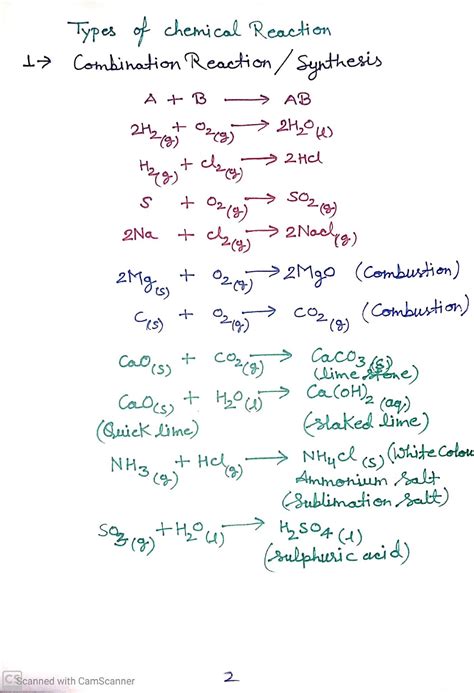 Types of chemical Reaction
1→ Combination Reaction / Synthesis
A + B ⟶ AB
2H₂(g) + O₂(g) → 2H₂O(l)
H₂(g) + Cl₂(g) → 2HCl
S + O₂(g) → SO₂(g)
2Na + Cl₂(g) → 2NaCl(g)
2Mg(s) + O₂(g) → 2MgO (Combustion)
C(s) + O₂(g) → CO₂(g) (Combustion)
CaO(s) + CO₂(g) → CaCO₃(s)
(lime stone)
CaO(s) + H₂O(l) → Ca(OH)₂(aq)
(Quick lime) (slaked lime)
NH₃(g) + HCl(g) → NH₄Cl(s) (White Colou
Ammonium salt
(Sublimation salt)
SO₃(g) + H₂O(l) → H₂SO₄(l)
(sulphuric acid)
CS Scanned with CamScanner
2